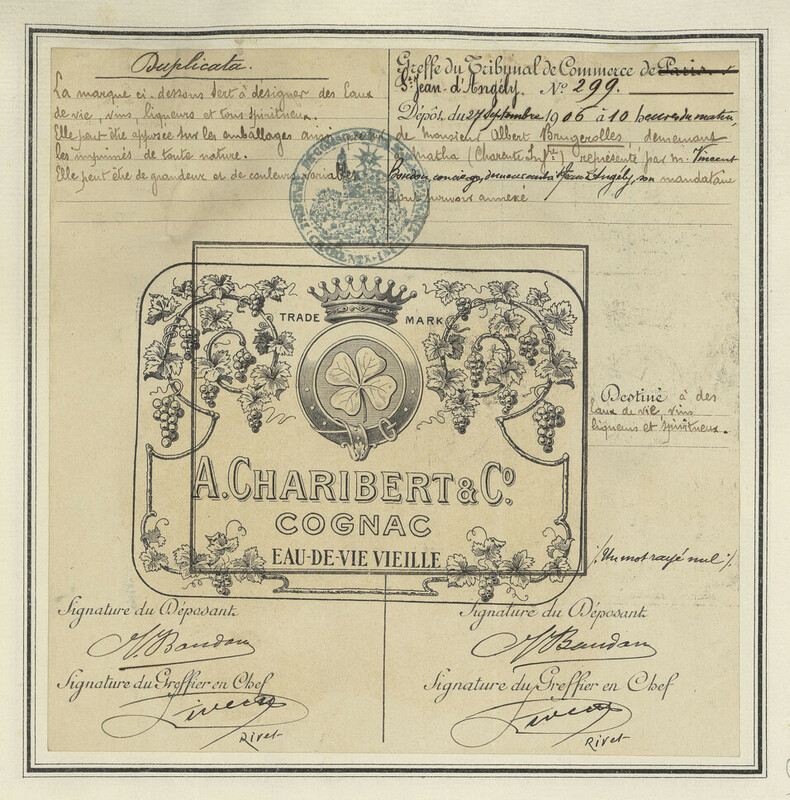 Duplicata.
La marque ci-dessous sert à désigner des Eaux
de vie, vins, liqueurs et tous spiritueux.
Elle peut être apposée sur les emballages ainsi
les imprimés de toute nature.
Elle peut être de grandeur et de couleurs variables
Greffe du Tribunal de Commerce de Paris
St Jean-d'Angély. No 299.
Dépôt du 27 Septembre 1906 à 10 heures du matin,
de Monsieur Albert Brugerolles, demeurant
Matha (Charente Infre) représenté par m. Vincent
concierge, demeurant à St Jean d'Angély, son mandataire
dont pouvoir annexé
TRADE MARK
A. CHARIBERT & Co.
COGNAC
EAU-DE-VIE VIEILLE
Destiné à des
Eaux de vie, vins
liqueurs et spiritueux.
Un mot rayé nul
Signature du Déposant
Signature du Greffier en Chef
Rivet
Signature du Déposant
Signature du Greffier en Chef
Rivet